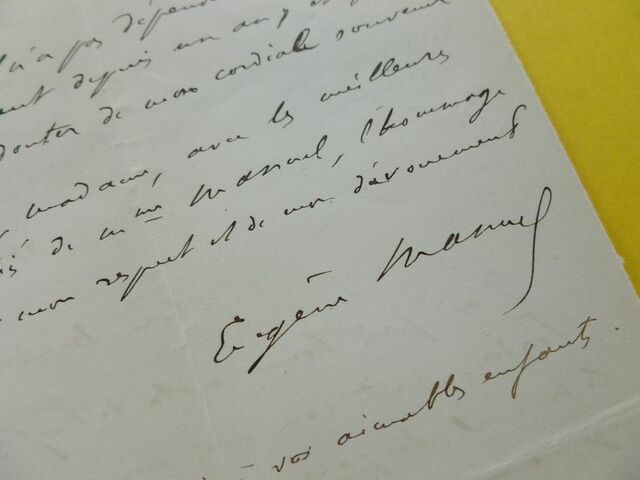 n'a pas dépend
depuis un an,
douter de mon cordial souvenir
madame, avec les meilleures
de Mme Manuel, l'hommage
mon respect et de mon dévouement
Eugène Manuel
à vos aimables enfants.